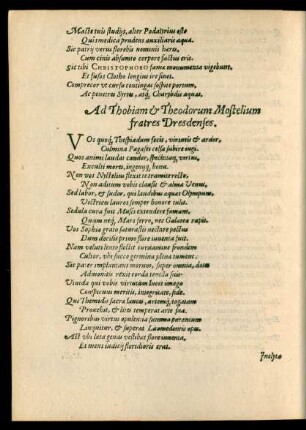 Macte tuis studijs, alter Podalirius esto
Qui medica prudens auxiliaris aqua.
Sic patrij verus florebis nominis heres,
Cum cinis absumto corpore factus eris.
SICELII CHRISTOPHORO fama monumenta vigebunt,
Et fusos Clotho longius ire sinet.
Comprecor ut cursu contingas sospite portum,
Ac penitus Syrtes, atq; Charybdis aquas.
Ad Thobiam & Theodorum Mostelium
fratres Dresdenses.
VOs quoq; Thespiadum socij, virtutis & ardor,
Culmina Pegasei celsa subire iugi.
Quos animi laudat candor, spectataq; virtus,
Exculti mores, ingenuiq; bona.
Non vos Nyctelius fluitare
Non aditum vobis clausit & alma Venus,
Sed labor, & sudor, qui laudibus aequat Olympum,
Victrices lauros semper honore tulit.
Sedula cura fuit Musis extendere famam,
Quam neq; Mars ferro, nec Galatea rapit.
Vos Sophia grato saturastis nectare pectus
Dum docilis promo flore iuventa fuit.
Nam veluti lento flectit virtamine frondem
Cultor, ubi succo germina plena tument:
Sic pater implantans morum, super omnia, dotes
Admonitu rexit corda tenella suis.
Utraq; qui vobis virtutum luxit imago
Conspicuus meritis, integritate, fide.
Qui Themidis sacra lances, artemq; togatam
Provehit, & litis temperat arte
Pignoribus virtus opulentia summa parentum
Linquitur, & superat Laomedontis opes.
Ast ubi laeta genas vestibat flore iuventa,
Et mens iudicij floridioris erat.
Inclyta